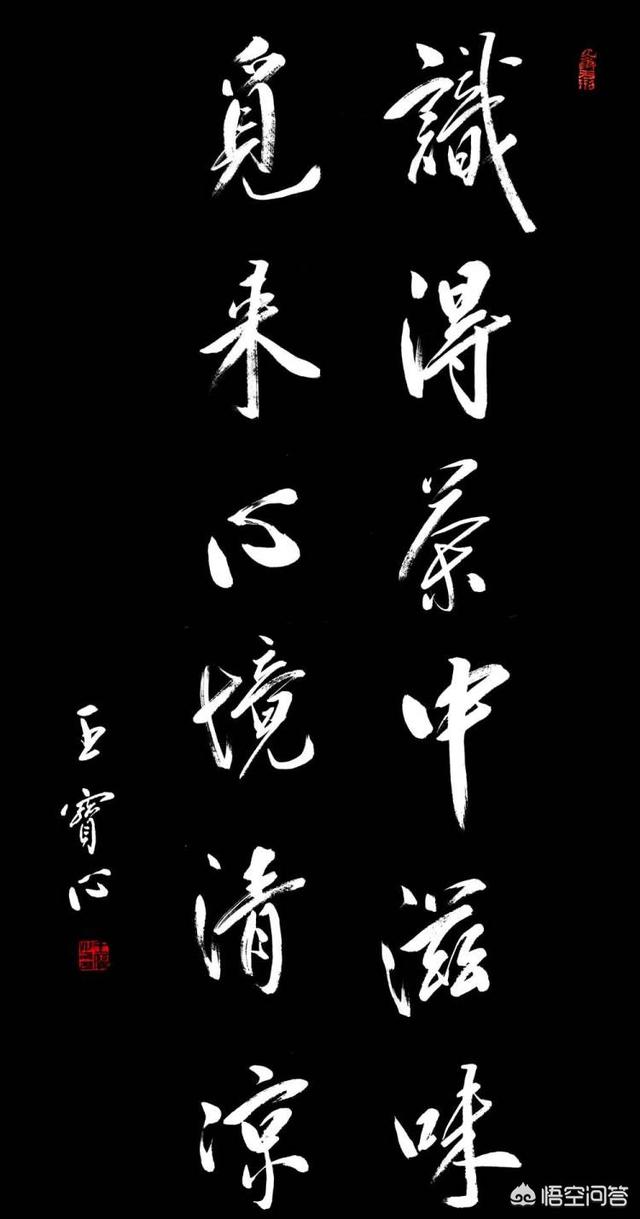 識得茶中滋味
覓来心境清涼
王寶心
悟空问答